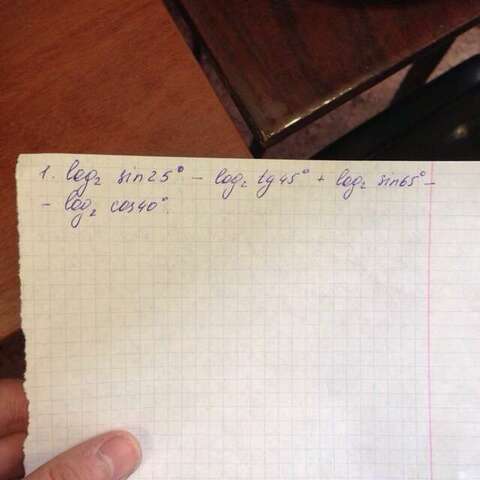 1. log₂ sin25° - log₂ tg45° + log₂ sin65° -
- log₂ cos40°.